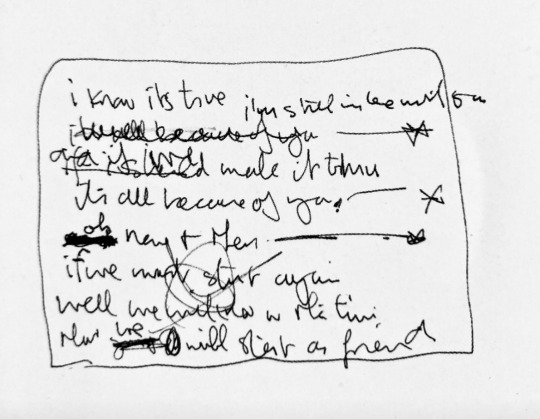 i know its true i'm still in love with you
its all because of you
made it thru
its all because of you
oh now & then
if we must start again
well we will know
that we will start as friend